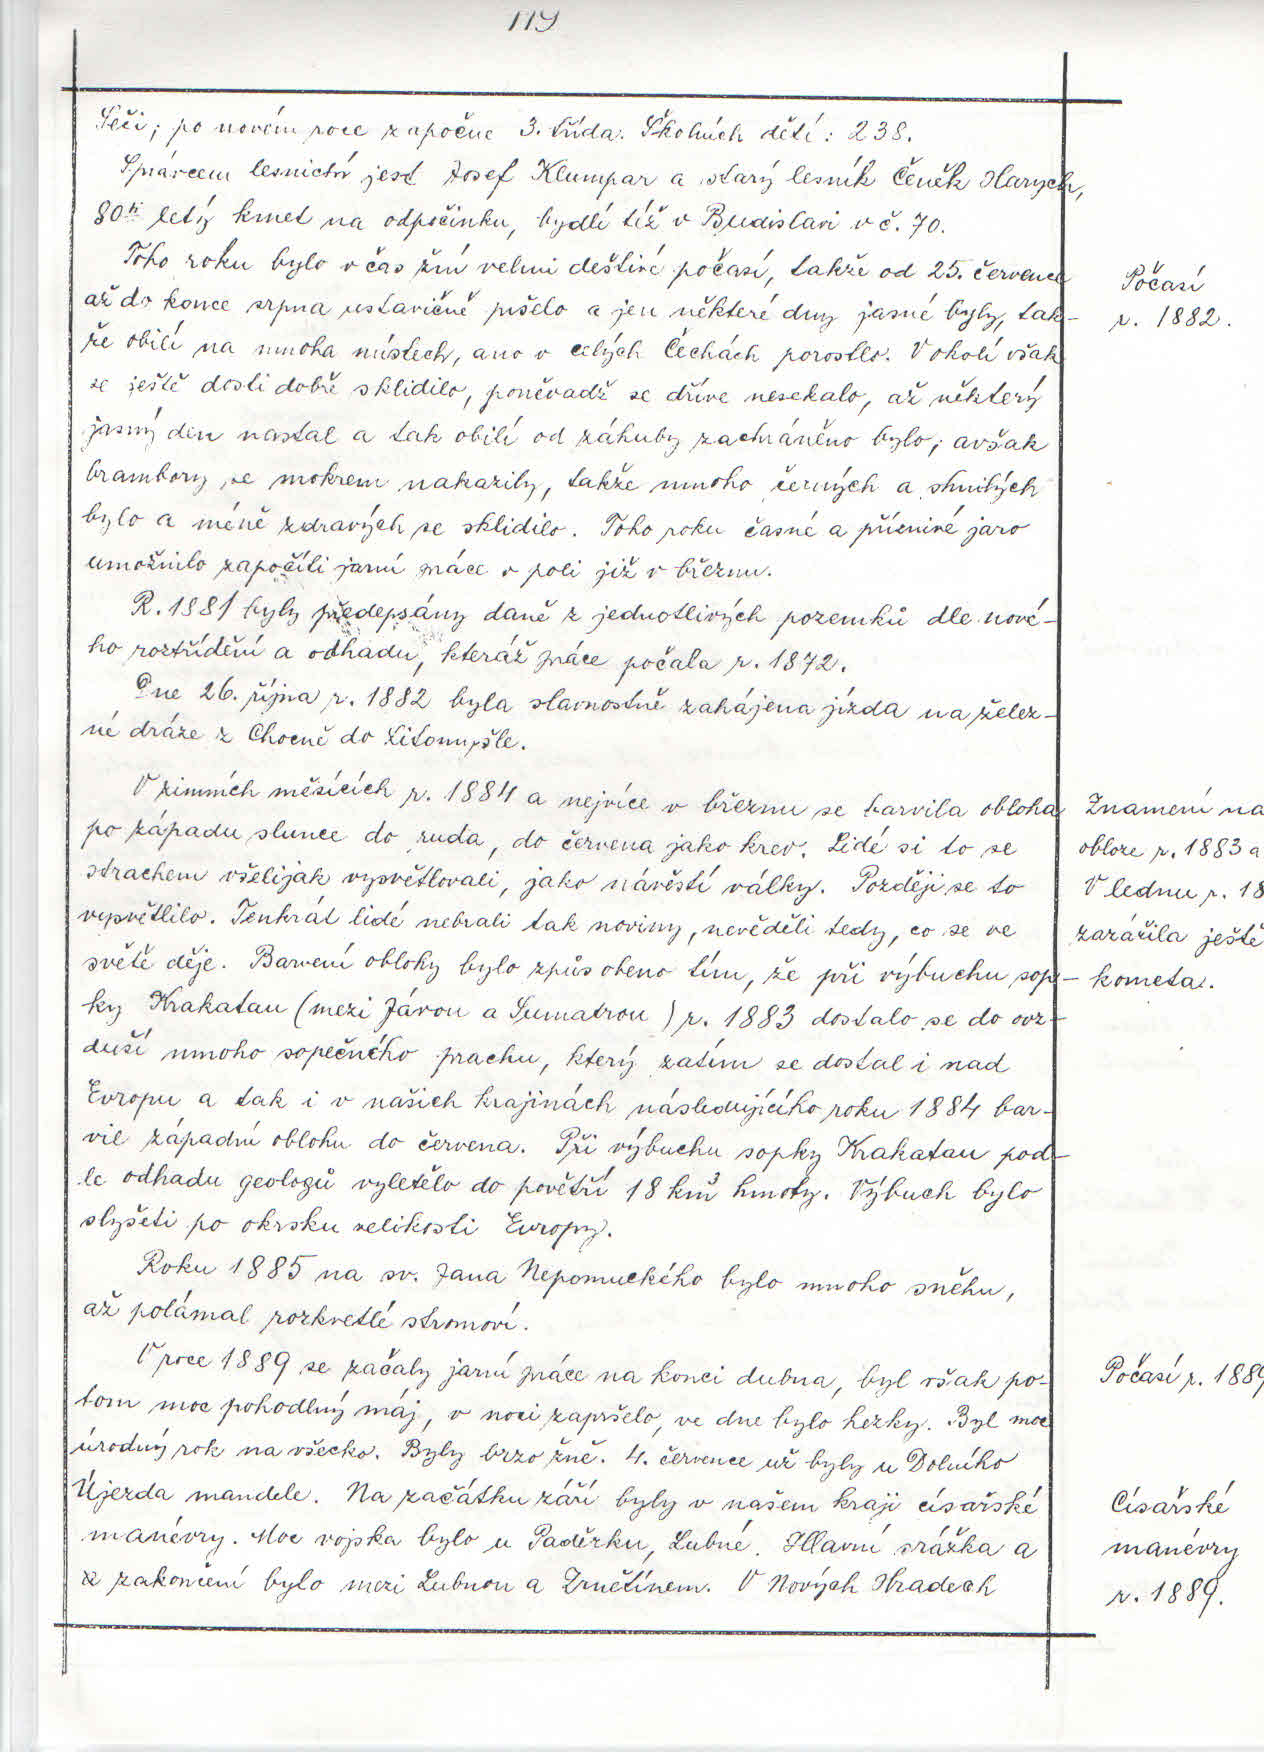 119
Seči; po novém roce započne 3. třída. Školních dětí: 238.
Správcem lesnictví jest Josef Klumpar a starý lesník Čeněk Harych,
80ti letý kmet na odpočinku, bydlí též v Budislavi v č. 70.
Toho roku bylo v čas žní velmi deštivé počasí, takže od 25. července
až do konce srpna ustavičně pršelo a jen některé dny jasné byly, tak-
že obilí na mnoha místech, ano v celých Čechách porostlo. V okolí však
se ještě dosti dobře sklidilo, poněvadž se dříve nesekalo, až některý
jasný den nastal a tak obilí od záhuby zachráněno bylo; avšak
brambory se mokrem nakazily, takže mnoho černých a shnilých
bylo a méně zdravých se sklidilo. Toho roku časné a příznivé jaro
umožnilo započíti jarní práce v poli již v březnu.
Počasí
r. 1882.
R. 1881 byly předepsány daně z jednotlivých pozemků dle nové-
ho roztřídění a odhadu, kteráž práce počala r. 1872.
Dne 26. října r. 1882 byla slavnostně zahájena jízda na želez-
né dráze z Chocně do Litomyšle.
V zimních měsících r. 1884 a nejvíce v březnu se barvila obloha
po západu slunce do ruda, do červena jako krev. Lidé si to se
strachem všelijak vysvětlovali, jako návěstí války. Později se to
vysvětlilo. Tenkrát lidé nebrali tak noviny, nevěděli tedy, co se ve
světě děje. Barvení oblohy bylo způsobeno tím, že při výbuchu sop-
ky Krakatau (mezi Jávou a Sumatrou) r. 1883 dostalo se do ovz-
duší mnoho sopečného prachu, který zatím se dostal i nad
Evropu a tak i v našich krajinách následujícího roku 1884 bar-
vil západní oblohu do červena. Při výbuchu sopky Krakatau pod-
le odhadu geologů vyletělo do povětří 18 km³ hmoty. Výbuch bylo
slyšeti po okrsku velikosti Evropy.
Znamení na
obloze r. 1883 a
V lednu r. 18
zazářila ještě
kometa.
Roku 1885 na sv. Jana Nepomuckého bylo mnoho sněhu,
až polámal rozkvetlé stromoví.
V roce 1889 se začaly jarní práce na konci dubna, byl však po-
tom moc pohodlný máj, v noci zapršelo, ve dne bylo hezky. Byl moc
úrodný rok na všecko. Byly brzo žně. 4. července už byly u Dolního
Újezda mandele. Na začátku září byly v našem kraji císařské
manévry. Moc vojska bylo u Paděrku, Lubné. Hlavní srážka a
z zakončení bylo mezi Lubnou a Zrnětínem. V Nových Hradech
Počasí r. 1889
Císařské
manévry
r. 1889.